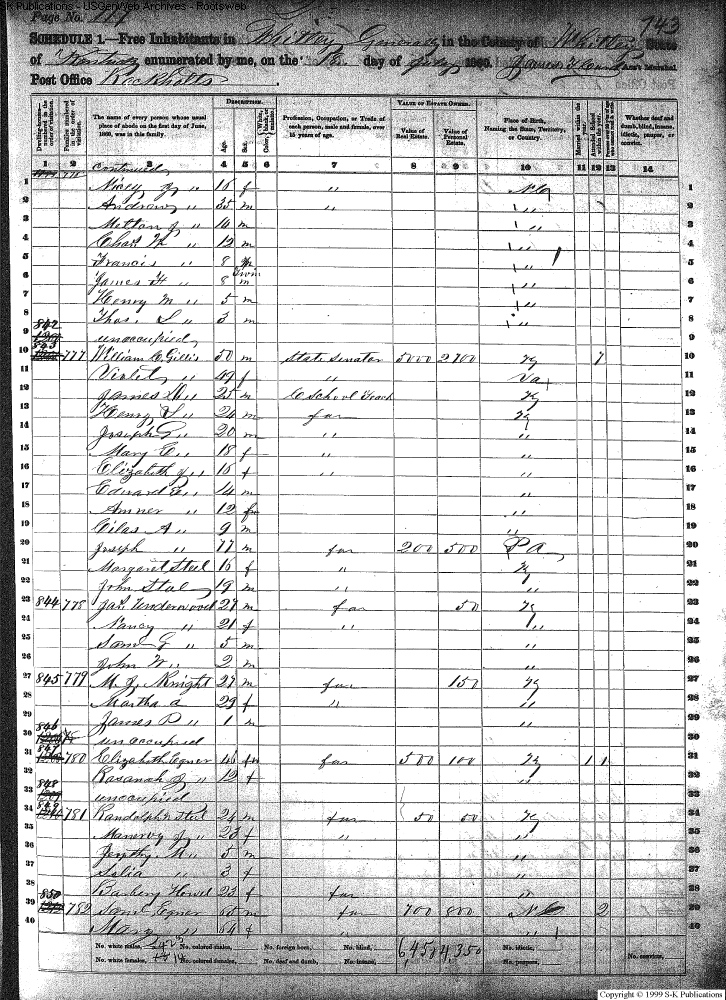 S-K Publications - USGenWeb Archives - Rootsweb
Page No. 117
743
SCHEDULE 1.—Free Inhabitants in Whitley Generally in the County of Whitley State
of Kentucky enumerated by me, on the day of July 1860. Ass't Marshal
Post Office Rockholts
DESCRIPTION. VALUE OF ESTATE OWNED.
Dwelling-houses—numbered in the order of visitation. Families numbered in the order of visitation. The name of every person whose usual place of abode on the first day of June, 1860, was in this family. Age. Sex. Color, White, black, or mulatto. Profession, Occupation, or Trade of each person, male and female, over 15 years of age. Value of Real Estate. Value of Personal Estate. Place of Birth, Naming the State, Territory, or Country. Married within the year. Attended School within the year. Whether deaf and dumb, blind, insane, idiotic, pauper, or convict.
1 2 3 4 5 6 7 8 9 10 11 12 13 14
continued
1 Nicey J " 16 f " 1
2 Andrew " 35 m " " 2
3 Melton J " 14 m " 3
4 Chas. W " 12 m " 4
5 Francis " 8 m " 5
6 James H " 8 Twin m " 6
7 Henry M " 5 m " 7
8 Thos. L " 3 m " 8
842
9 unoccupied 9
843
10 777 William C Gillis 50 m State Senator 5000 2700 Ky 7 10
11 Violet " 49 f " Va 11
12 James D " 25 m C School Teach Ky 12
13 Henry L " 24 m far Ky 13
14 Joseph G " 20 m " " 14
15 Mary E " 18 f " " 15
16 Elizabeth J " 16 f " " 16
17 Edward P " 14 m " 17
18 Amner " 12 fm " 18
19 Cilas A " 9 m " 19
20 Joseph " 77 m far 200 500 Pa 20
21 Margaret Stal 16 f " Ky 21
22 John Stal 19 m " " 22
23 844 778 Jas. Underwood 27 m far 50 Ky 23
24 Nancy " 21 f " " 24
25 Saml G " 5 m " 25
26 John W " 2 m " 26
27 845 779 M. J. Knight 27 m far 150 Ky 27
28 Martha a 29 f " " 28
29 James P " 1 m " 29
846
30 unoccupied 30
847
31 780 Elizabeth Egner 46 fm far 500 100 Ky 1 1 31
32 Rosanah J " 12 f " 32
848
33 unoccupied 33
849
34 781 Randolph Stal 24 m far 50 50 Ky 34
35 Manervy J " 23 f " " 35
36 M " 5 m " 36
37 Selia " 3 f " 37
38 Barbery Howel 23 f far " 38
850
39 782 Saml Egner 68 m far 700 800 N C 2 39
40 Mary " 64 f " " 40
No. white males, No. colored males, No. foreign born, No. blind, 6,450 4,350 No. idiotic,
No. white females, No. colored females, No. deaf and dumb, No. insane, No. paupers, No. convicts,
Copyright © 1999 S-K Publications